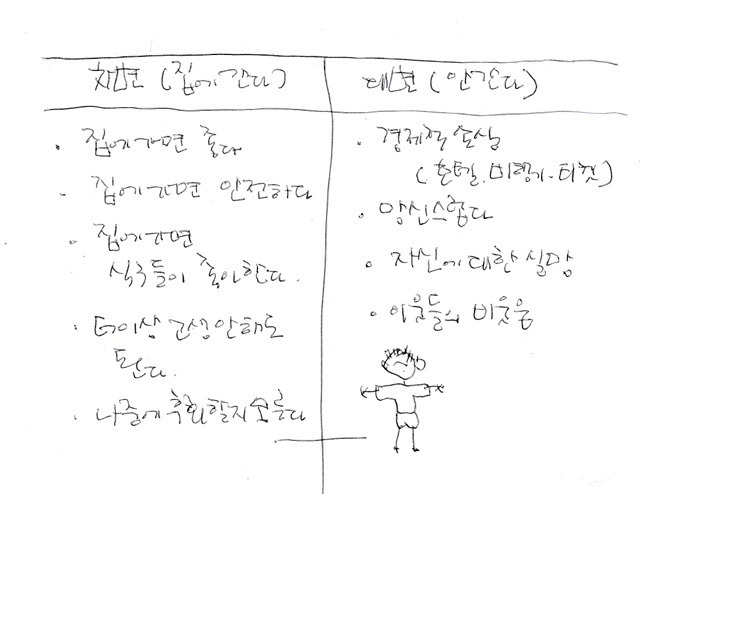 차변 (집에 간다)
대변 (안간다)
· 집에가면 좋다
· 집에가면 안전하다
· 집에가면
식구들이 좋아한다.
· 더이상 고생안해도
된다.
· 나중에 후회할지 모른다
· 경제적 손실
(호텔.비행기.티켓)
· 망신스럽다
· 자신에 대한 실망
· 이웃들의 비웃음